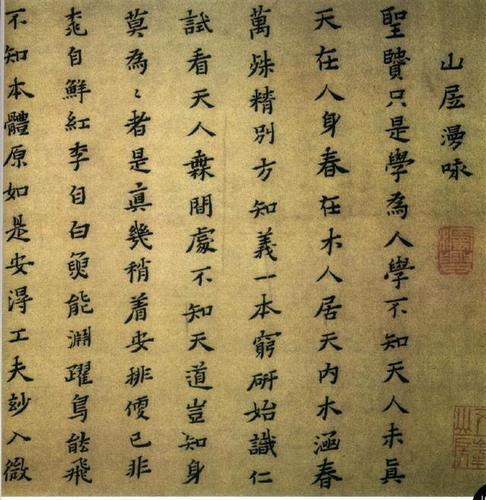 山居漫咏
聖賢只是學為人學不知天人未眞
天在人身春在木人居天内木涵春
萬殊精別方知義一本窮研始識仁
試看天人無間處不知天道豈知身
莫為〻者是眞幾稍着安排便已非
桃自鮮紅李自白魚能淵躍鳥能飛
不知本體原如是安得工夫妙入微